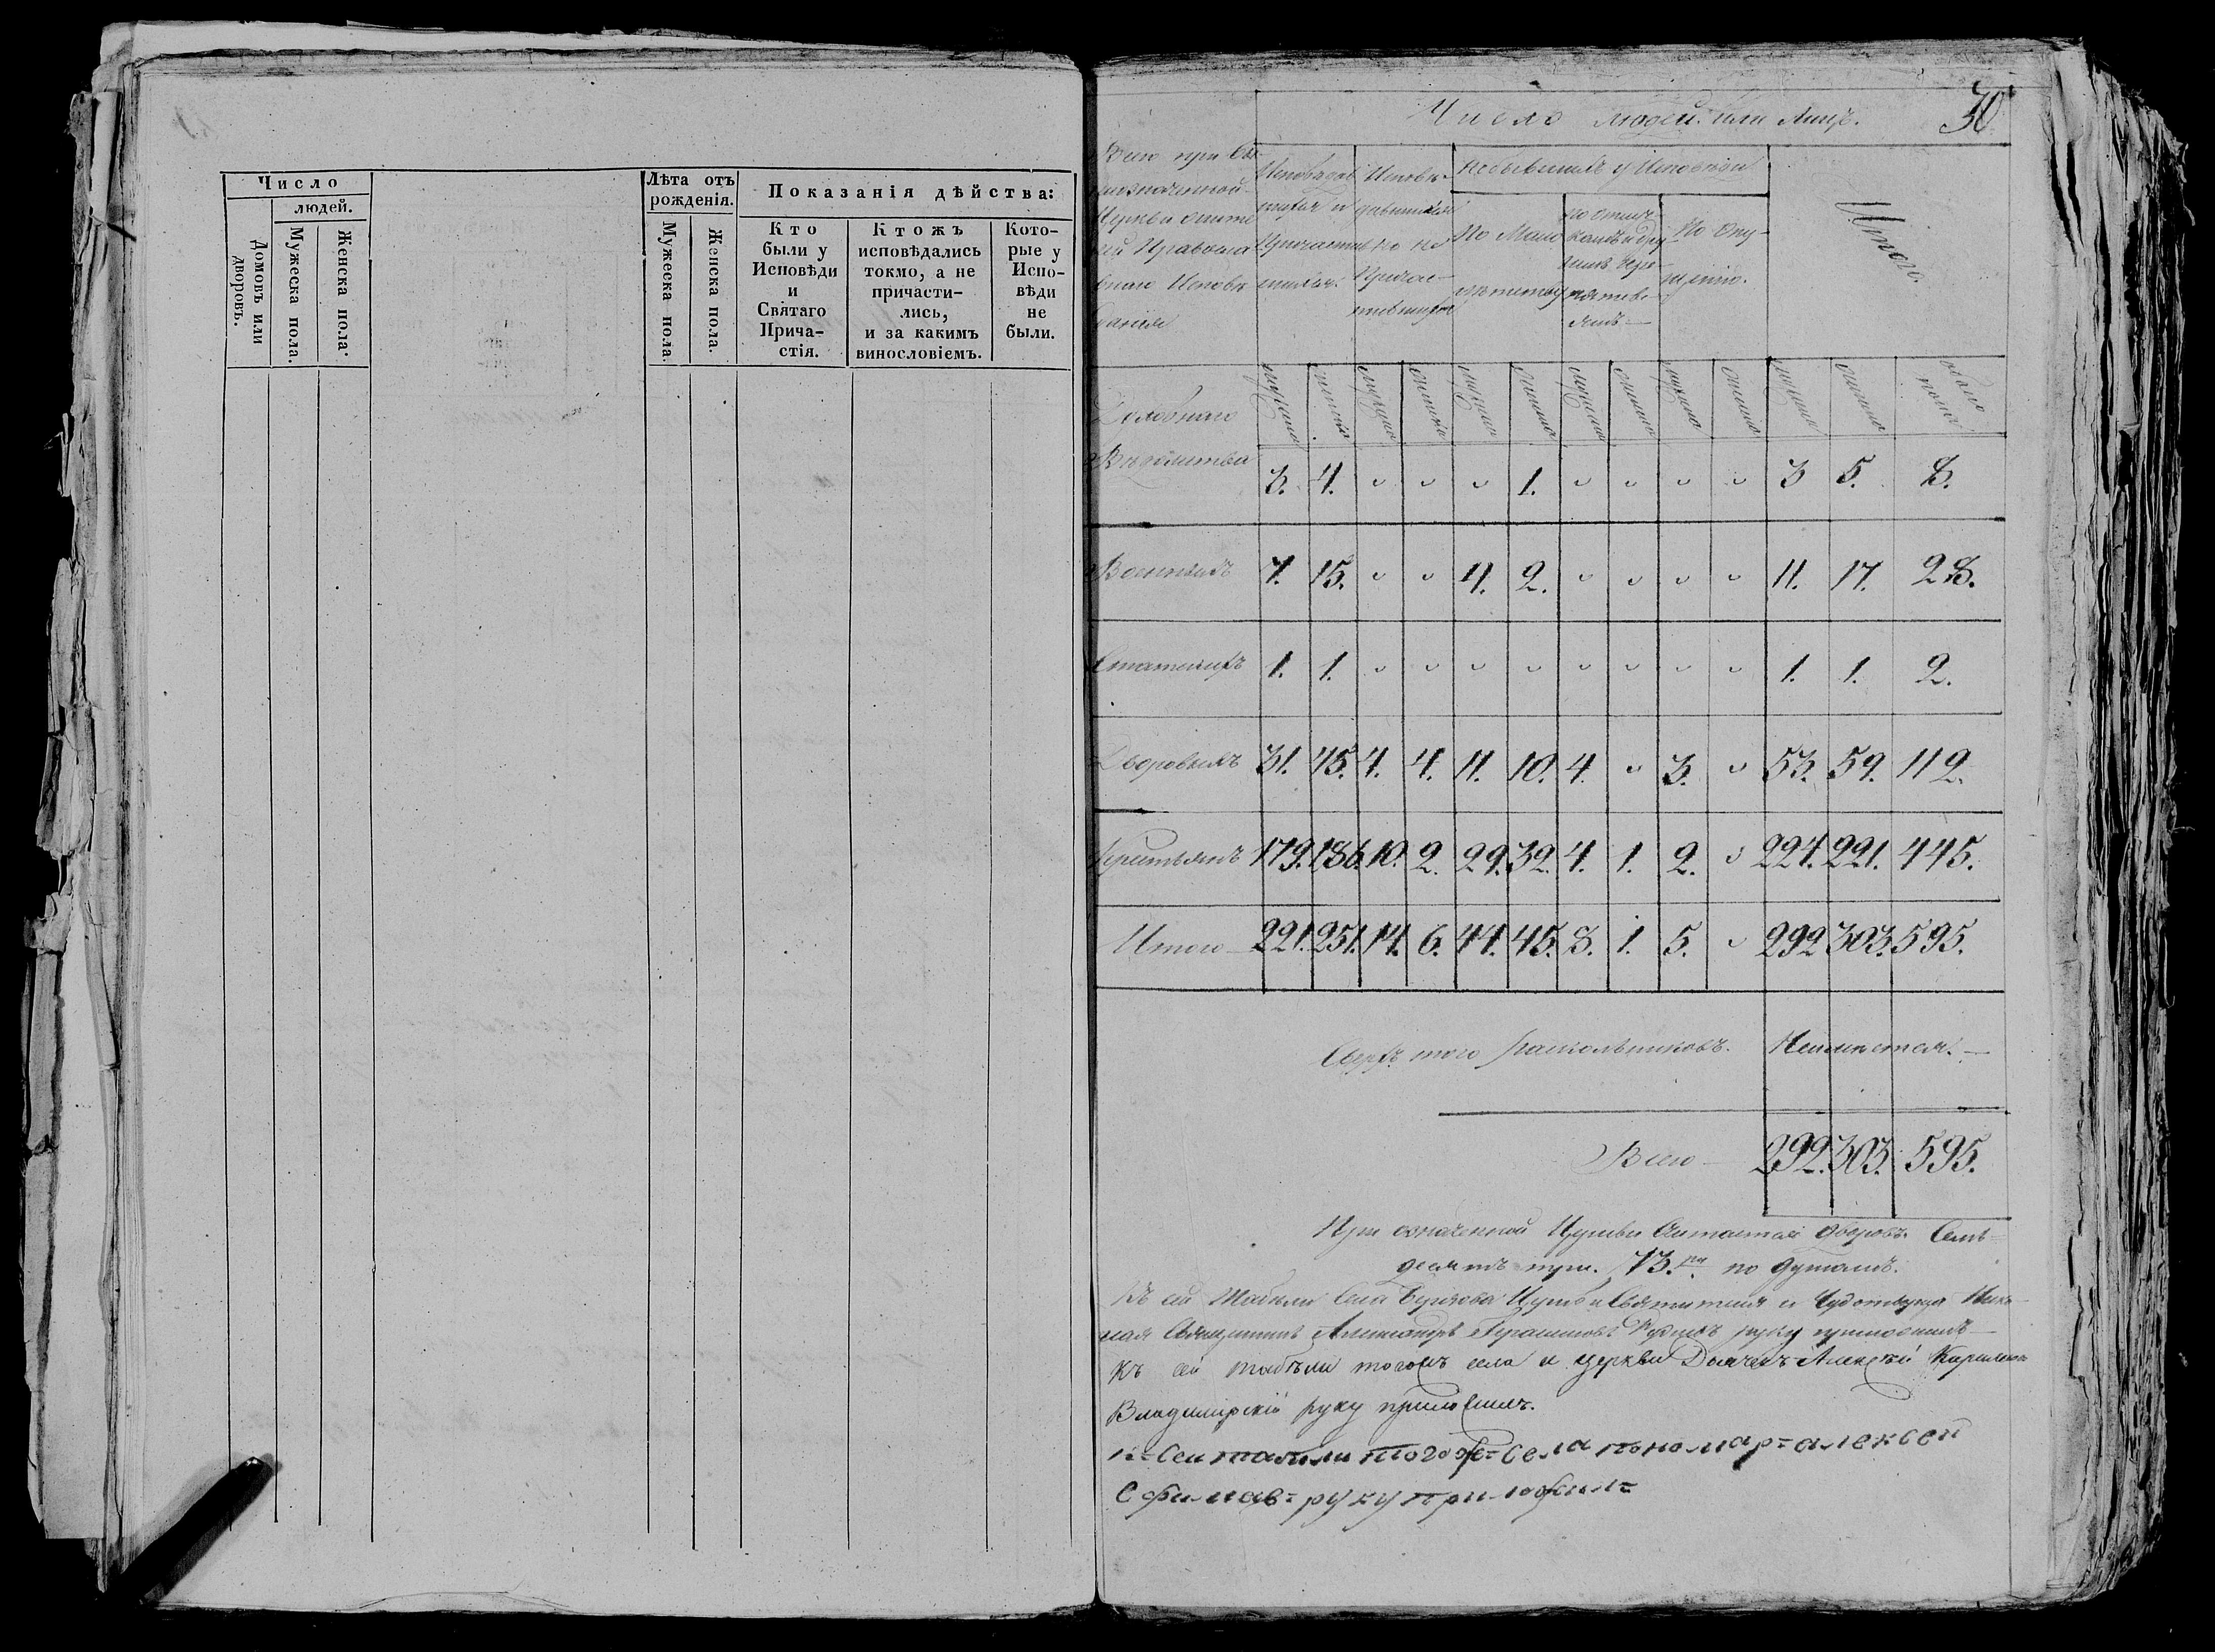 Число
людей.
Домовъ или дворовъ.
Мужеска пола.
Женска пола.
Лѣта отъ
рожденія.
Мужеска пола.
Женска пола.
Показанія дѣйства:
Кто
были у
Исповѣди
и
Святаго
Прича-
стія.
Ктожъ
исповѣдались
токмо, а не
причасти-
лись,
и за какимъ
винословіемъ.
Кото-
рые у
Испо-
вѣди
не
были.
30
Число людей или Лицъ.
Всего при
означенной
Церкви
Православ
наго Исповѣ
данія
Исповѣдав
шихся и
Причастив
шихся.
Исповѣ-
давшихся
но не
Причас-
тившихся
Небывшихъ у Исповѣди
По Мало
лѣтству
по отлуч-
камъ и дру
гимъ
По Опу-
щенію.
Итого.
мужеска женска мужеска женска мужеска женска мужеска женска мужеска женска мужеска женска обоего пола
Духовнаго
Вѣдомства 3. 4. 1. 3 5. 8.
Военныхъ 7. 15. 4. 2. 11. 17. 28.
Статскихъ 1. 1. 1. 1. 2.
Дворовыхъ 31. 45. 4. 4. 11. 10. 4. 3. 53. 59. 112.
Крестьянъ 179. 186. 10. 2. 29. 32. 4. 1. 2. 224. 221. 445.
Итого 221. 251. 14. 6. 44. 45. 8. 1. 5. 292 303. 595.
Сверхъ того раскольниковъ. Неимѣется.
Всего 292. 303. 595.
При означенной Церкви Считается дворовъ Семь-
десятъ три. 73. по душамъ.
Къ сей Табели Села Церкви Святителя и Чудотворца Нико-
лая Священникъ Александръ руку приложилъ
Къ сей табѣли тогожъ села и церкви Дьячекъ Алексѣй
Владимірскій руку приложилъ.
къ Сеи табили тогожъ Села пономарь алексеи
Ефимовъ руку приложилъ